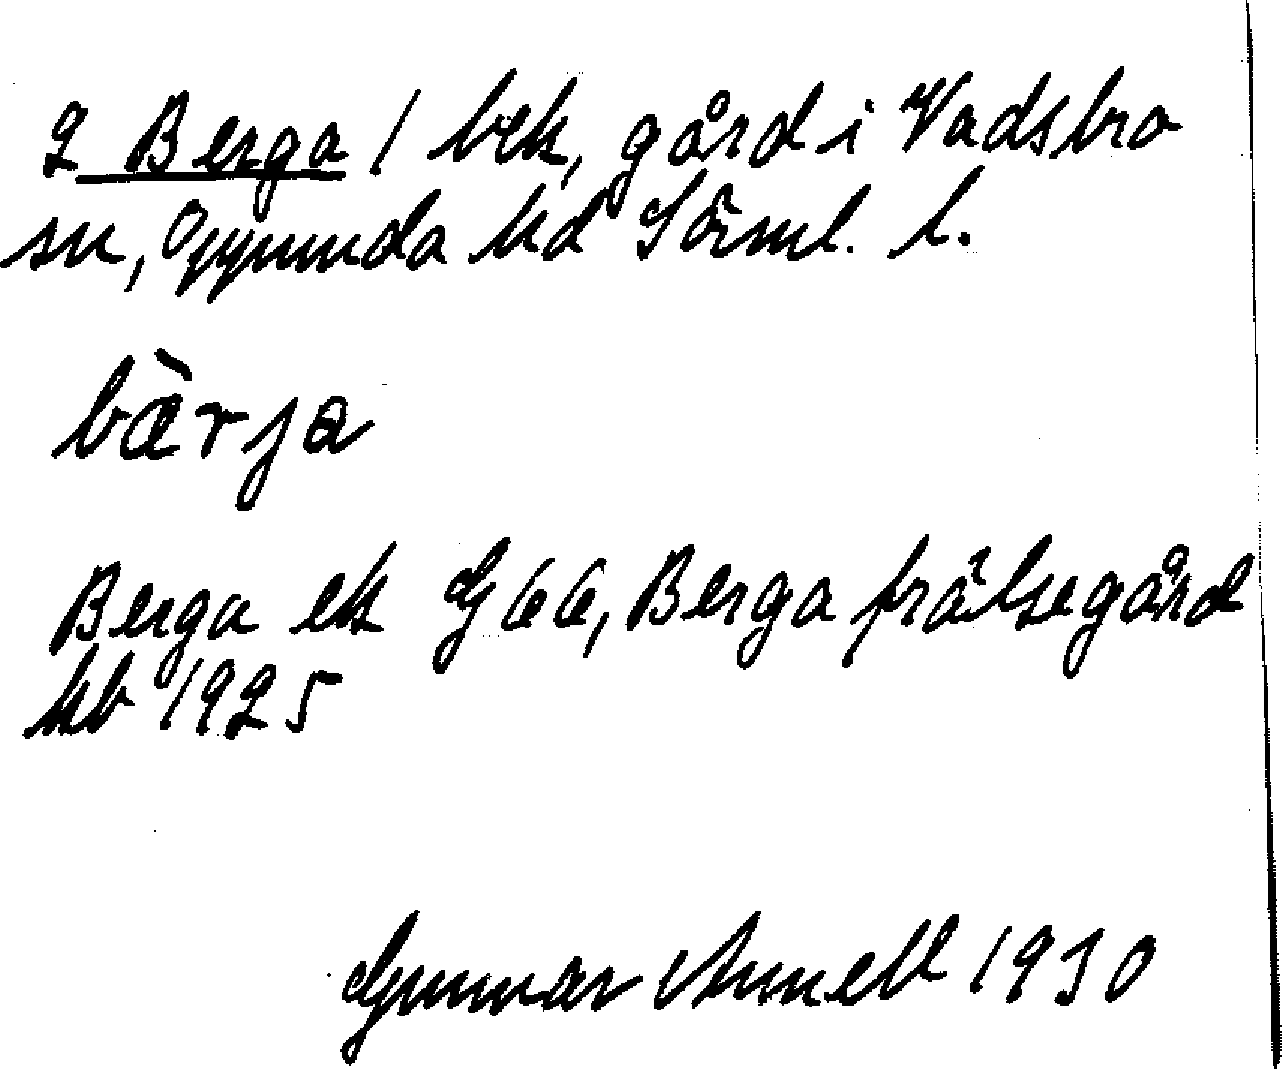 2 Berga 1 bek, gård i Vadsbro
sn, Oppunda hd Sörml. l.
bæ̀rja
Berga ek G 66, Berga frälsegård
kb 1925
Gunnar Arnell 1930